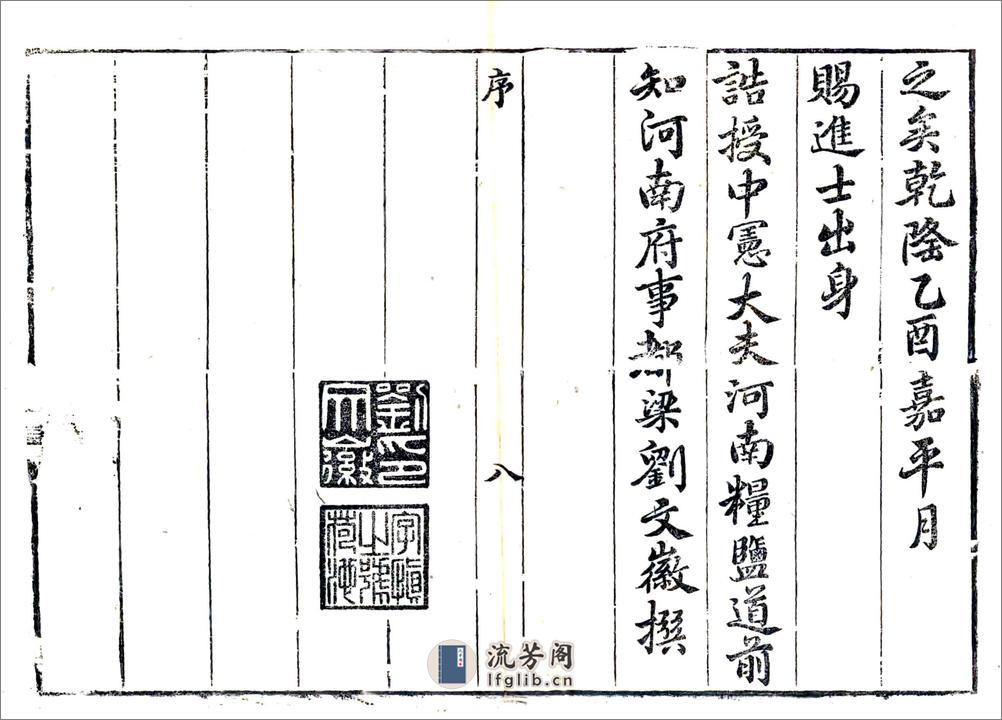 之矣乾隆乙酉嘉平月
賜進士出身
誥授中憲大夫河南糧鹽道前
知河南府事都梁劉文徽撰
序
八
劉文徽印
字慎
山號
荷池
流芳阁
lfglib.cn